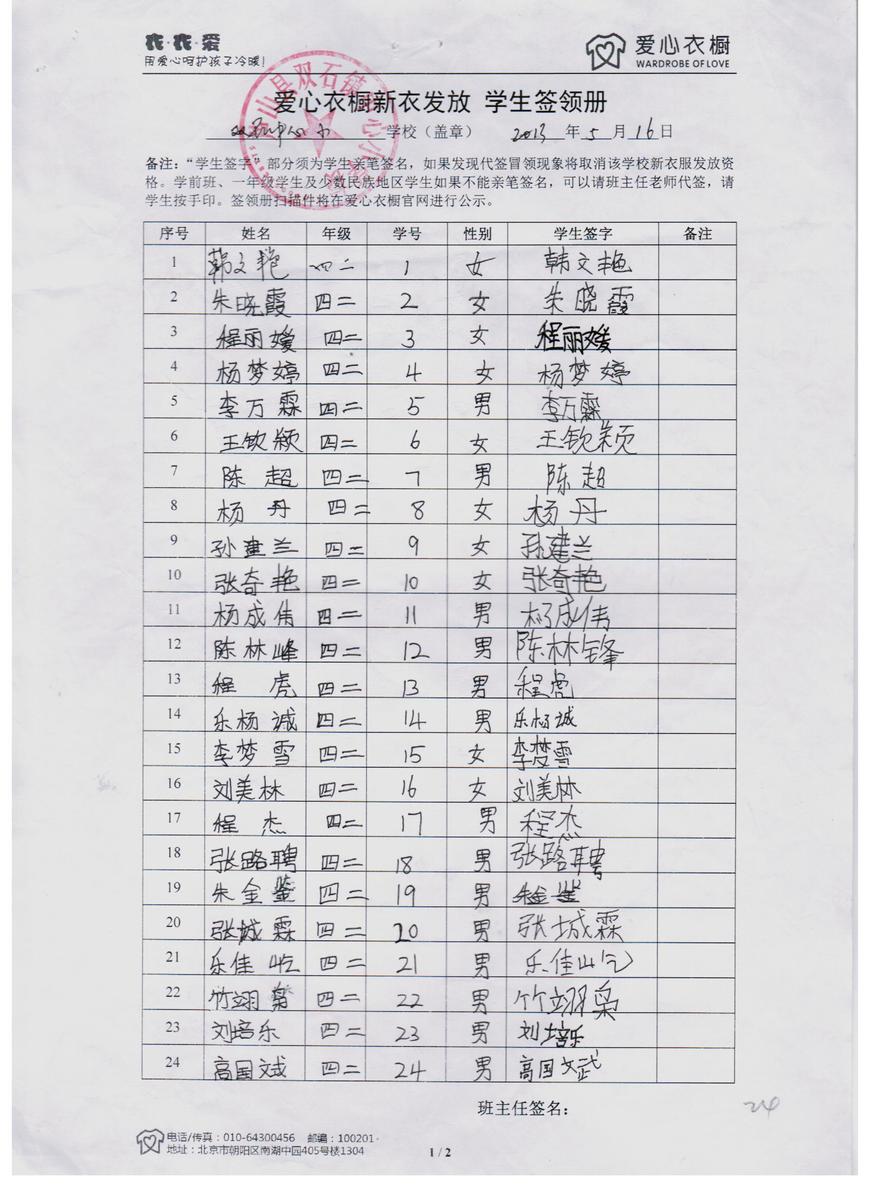 衣·衣·爱
用爱心呵护孩子冷暖!
爱心衣橱
WARDROBE OF LOVE
爱心衣橱新衣发放 学生签领册
双石中心小 学校（盖章） 2013 年 5 月 16 日
备注：“学生签字”部分须为学生亲笔签名，如果发现代签冒领现象将取消该学校新衣服发放资
格。学前班、一年级学生及少数民族地区学生如果不能亲笔签名，可以请班主任老师代签，请
学生按手印。签领册扫描件将在爱心衣橱官网进行公示。
序号 姓名 年级 学号 性别 学生签字 备注
1 韩文艳 四二 1 女 韩文艳
2 朱晓霞 四二 2 女 朱晓霞
3 程丽嫒 四二 3 女 程丽嫒
4 杨梦婷 四二 4 女 杨梦婷
5 李万霖 四二 5 男 李万霖
6 王钦颖 四二 6 女 王钦颖
7 陈超 四二 7 男 陈超
8 杨丹 四二 8 女 杨丹
9 孙建兰 四二 9 女 孙建兰
10 张奇艳 四二 10 女 张奇艳
11 杨成伟 四二 11 男 杨成伟
12 陈林峰 四二 12 男 陈林锋
13 程虎 四二 13 男 程虎
14 乐杨诚 四二 14 男 乐杨诚
15 李梦雪 四二 15 女 李梦雪
16 刘美林 四二 16 女 刘美林
17 程杰 四二 17 男 程杰
18 张路聘 四二 18 男 张路聘
19 朱金鉴 四二 19 男 朱金
20 张城霖 四二 20 男 张城霖
21 乐佳屹 四二 21 男 乐佳屹
22 竹翊枭 四二 22 男 竹翊枭
23 刘培乐 四二 23 男 刘培乐
24 高国斌 四二 24 男 高国斌
班主任签名：
24
电话/传真：010-64300456 邮编：100201
地址：北京市朝阳区南湖中园405号楼1304
1 / 2